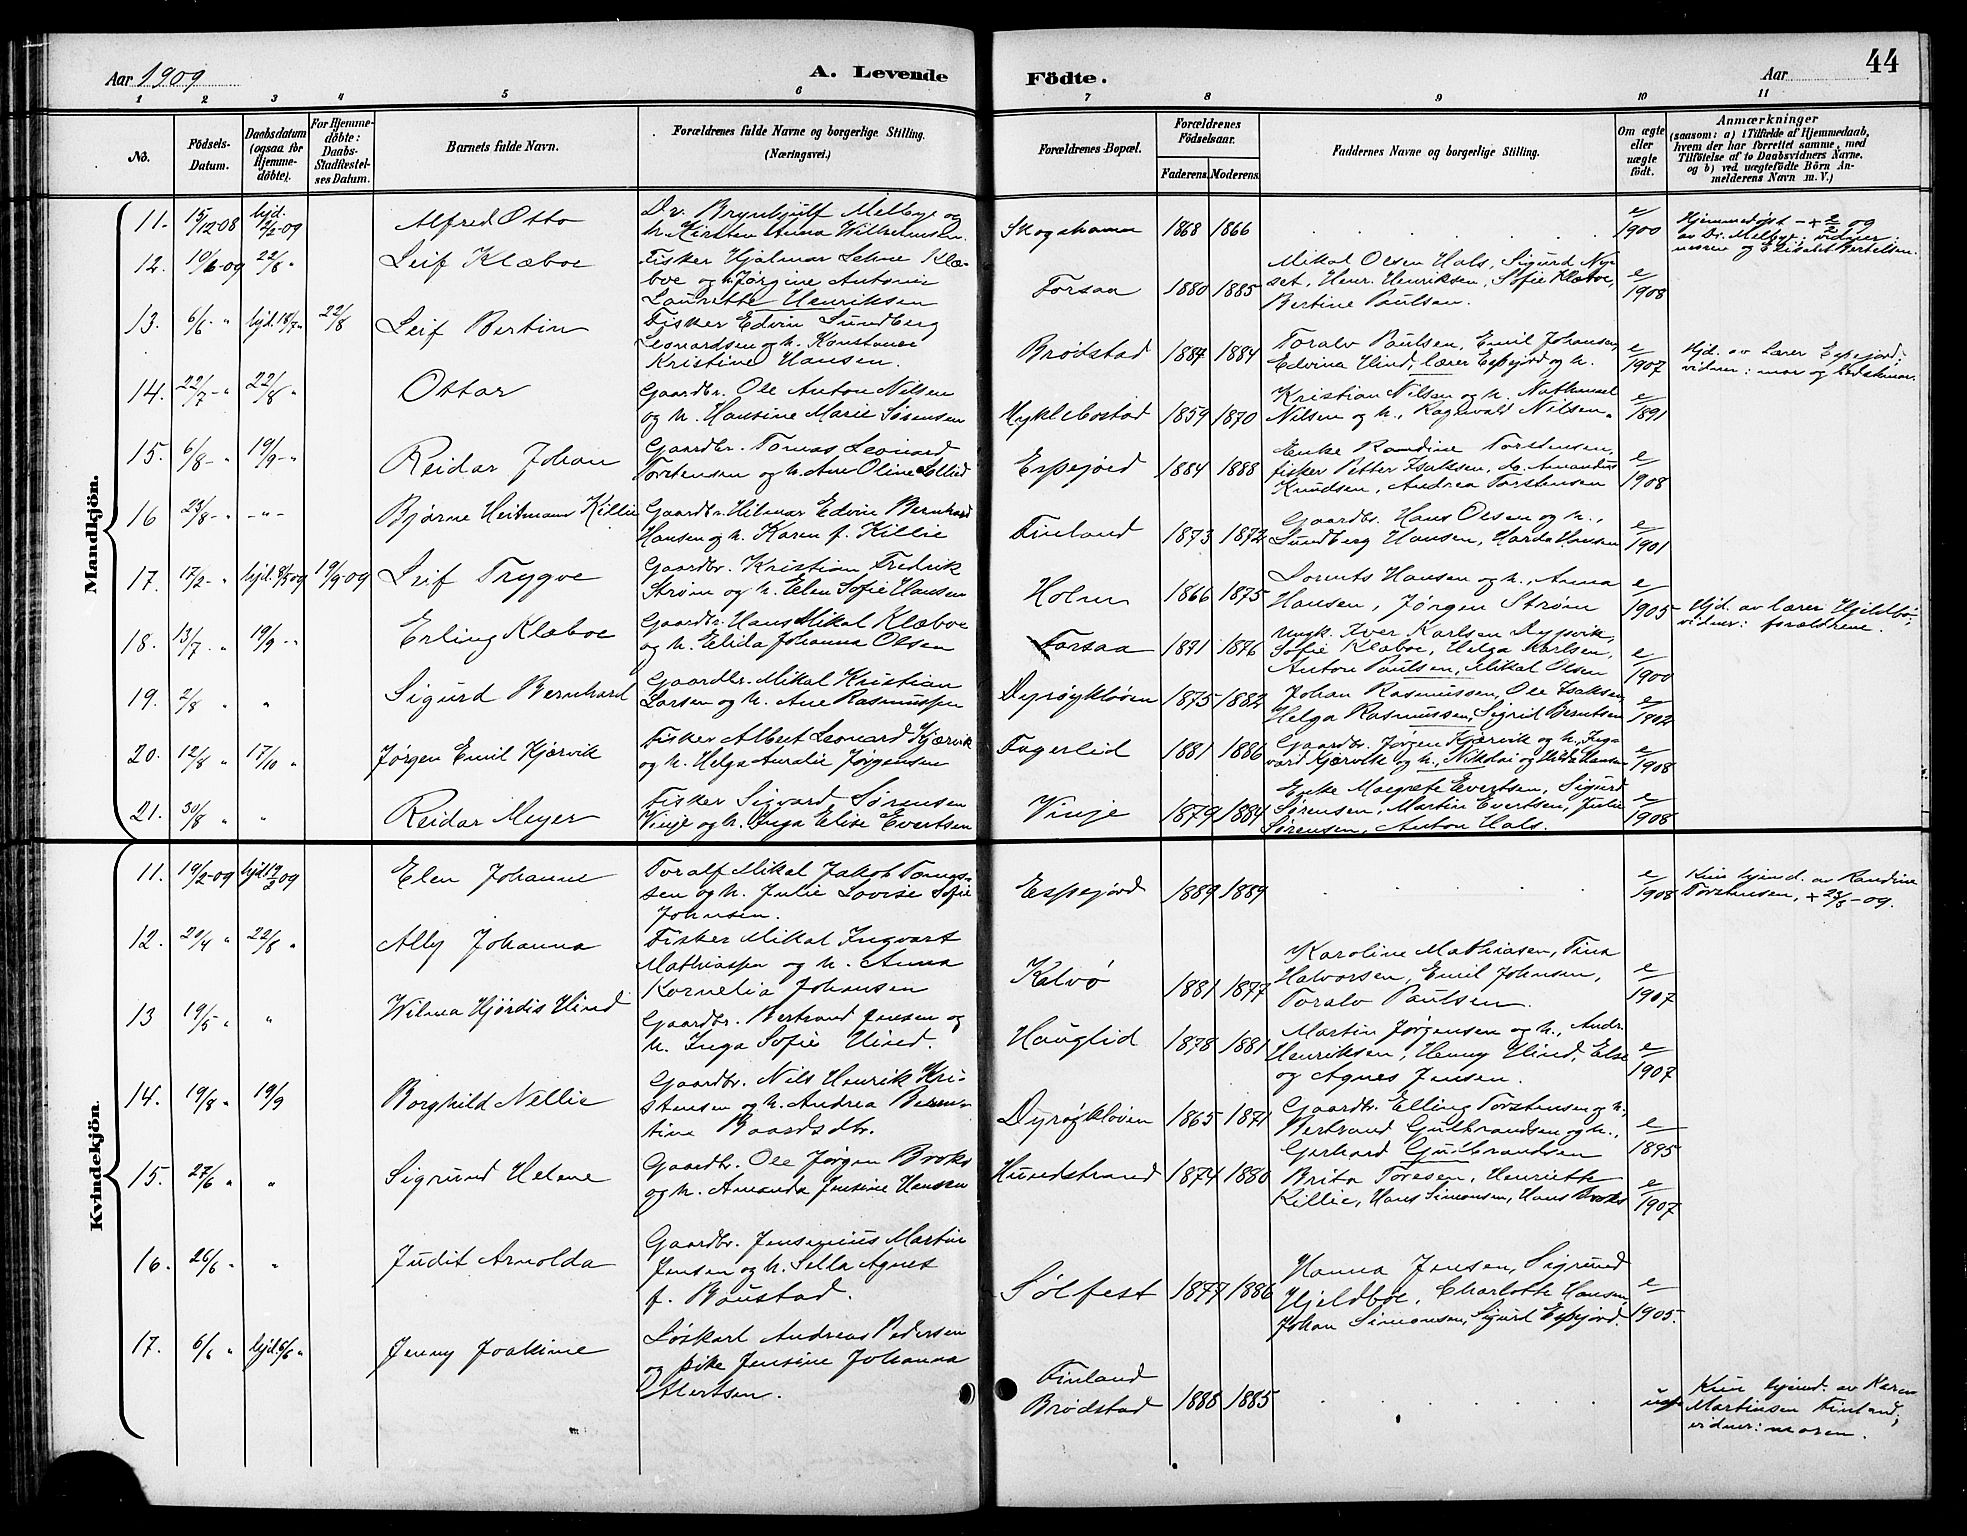 Aar 1909
A. Levende Födte.
Aar
44
1 2 3 4 5 6 7 8 9 10 11
No.
Födsels-Datum.
Daabsdatum (ogsaa for Hjemmedöbte).
For Hjemmedöbte: Daabs-Stadfestelses Datum.
Barnets fulde Navn.
Forældrenes fulde Navne og borgerlige Stilling. (Næringsvei.)
Forældrenes Bopæl.
Forældrenes Födselsaar.
Faderens. Moderens.
Faddernes Navne og borgerlige Stilling.
Om ægte eller uægte födt.
Anmærkninger
(saasom: a) i Tilfælde af Hjemmedaab, hvem der har forrettet samme, med Tilföielse af to Daabsvidners Navne. og b) ved uægtefödte Börn Anmelderens Navn m. V.)
Mandkjön.
11. 15/12-08 hjd. 2/2-09 Alfred Otto
Dr. Brynhjulf Melbye og
h. Kirsten Anna Wilhelmsen.
Skogshamn 1868 1866 e/1900
Hjemmedøbt - + 2/2 09
av Dr. Melbye; vidner:
moren og Elisabet Bertelsen.
12. 10/6-09 22/8 " Leif Klæboe
Fisker Hjalmar Schue Klæ-
boe og h. Jørgine Antonie
Laurette Henriksen
Forsaa 1880 1885
Mikal Olsen Hals, Sigurd Ny-
set, Henr. Henriksen, Sofie Klæboe,
Bertine Paulsen.
e/1908
13. 6/6 - " hjd. 18/7 " 22/8 Leif Bertin
Fisker Edvin Sundberg
Leonardsen og h. Konstance
Kristine Hansen.
Brødstad 1887 1884
Toralv Paulsen, Emil Johansen,
Edvina Hind, lærer Espejord og h.
e/1907
Hjd. av lærer Espejord;
vidner: mor og
14. 22/7 - " 22/8 " Ottar
Gaardbr. Ole Anton Nilsen
og h. Hansine Marie Sørensen
Myklebostad 1859 1870
Kristian Nilsen og h. Nathanael
Nilsen og h., Ragnvald Nilsen.
e/1891
15. 6/8 - " 19/9 - " Reidar Johan
Gaardbr. Tomas Leonard
Torstensen og h. Ane Oline Sollid
Espejord 1884 1888
Enke Randine Torstensen,
fisker Petter Isaksen, do. Amandus
Knudsen, Andrea Torstensen
e/1908
16 23/8 - " - " - Bjarne Heitmann Killie
Gaardbr. Hilmar Edvin Bernhard
Hansen og h. Karen f. Killie
Finland 1873 1872
Gaardbr. Hans Olsen og h.,
Sundberg Hansen, Harda Hansen
e/1901
17. 17/2 - " hjd. 8/3 09 19/9-09 Leif Trygve
Gaardbr. Kristian Fredrik
Strøm og h. Elen Sofie Hansen
Holm 1866 1875
Lorents Hansen og h., Anna
Hansen, Jørgen Strøm
e/1905
Hjd. av lærer Hjeldbø;
vidner: forældrene.
18. 13/7 " 19/9 - " Erling Klæboe
Gaardbr. Hans Mikal Klæboe
og h. Elida Johanna Olsen
Forsaa 1871 1876
Ungk. Iver Karlsen Dypvik,
Sofie Klæboe, Helga Karlsen,
Anton Paulsen, Mikal Olsen
e/1900
19. 2/8 " " Sigurd Bernhard
Gaardbr. Mikal Kristian
Larsen og h. Ane Rasmussen
Dyrøykløven 1875 1882
Johan Rasmussen, Ole Isaksen
Helga Rasmussen, Sigrid Berntsen
e/1902
20. 12/8 " 17/10 " Jørgen Emil Kjørvik
Fisker Albert Leonard Kjørvik
og h. Helga Amalie Jørgensen
Fagerlid 1881 1886
Gaardbr. Jørgen Kjørvik og h., Ing-
vard Kjørvik og h., Nikolai og Hilda Hansen
e/1908
21. 30/8 " " Reidar Meyer
Fisker Sigvard Sørensen
Vinje og h. Inga Elise Evertsen
Vinje 1879 1884
Enke Margrete Evertsen, Sigurd
Sørensen, Martin Evertsen, Julie
Sørensen, Anton Hals.
e/1908
Kvindekjön.
11. 19/2-09 hjd 19/2 09 Elen Johanne
Toralf Mikal Jakob Tomas-
sen og h. Julie Lovise Sofie
Johnsen.
Espejord 1889 1889 e/1908
Kun hjemd. av Randine
Torstensen, + 23/5-09.
12. 20/4 " 22/8 " Ally Johanna
Fisker Mikal Ingvart
Mathiassen og h. Anna
Kornelia Johansen
Kalvø 1881 1877
Karoline Mathiasen, Tina
Halvorsen, Emil Johnsen,
Toralv Paulsen.
e/1907
13 19/5 " " Wilma Hjørdis Hind
Gaardbr. Bertrand Jensen og
h. Inga Sofie Hind.
Hauglid 1878 1881
Martin Jørgensen og h., Andr.
Henriksen, Henny Hind, Else
og Agnes Jensen.
e/1907
14. 19/8 " 19/9 Borghild Nellie
Gaardbr. Nils Henrik Kri-
stensen og h. Andrea Bern-
tine Baardsdtr.
Dyrøykløven 1865 1871
Gaardbr. Elling Torstensen og h.,
Bertrand Gulbrandsen og h.,
Gerhard Gulbrandsen
e/1895
15. 27/6 " " Sigrund Helene
Gaardbr. Ole Jørgen Broks
og h. Amanda Jensine Hansen
Hundstrand 1874 1880
Brita Toresen, Henriette
Killie, Hans Simonsen, Hans Broks
e/1907
16. 26/6 " " Judit Arnolda
Gaardbr. Jensenius Martin
Jensen og h. Sella Agnes
f. Baustad.
Sølfest 1877 1886
Hanna Jensen, Sigrund
Hjeldboe, Charlotte Hansen,
Johan Simonsen, Sigurd Espejord.
e/1905.
17. 6/6 " hjd. 6/6 " Jenny Joakime
Løskarl Andreas Pedersen
og pike Jensine Johanna
Albertsen.
Finland
Brødstad 1888 1885
Kun hjemd. av Karen
Martinsen Finland;
vidner: moren.